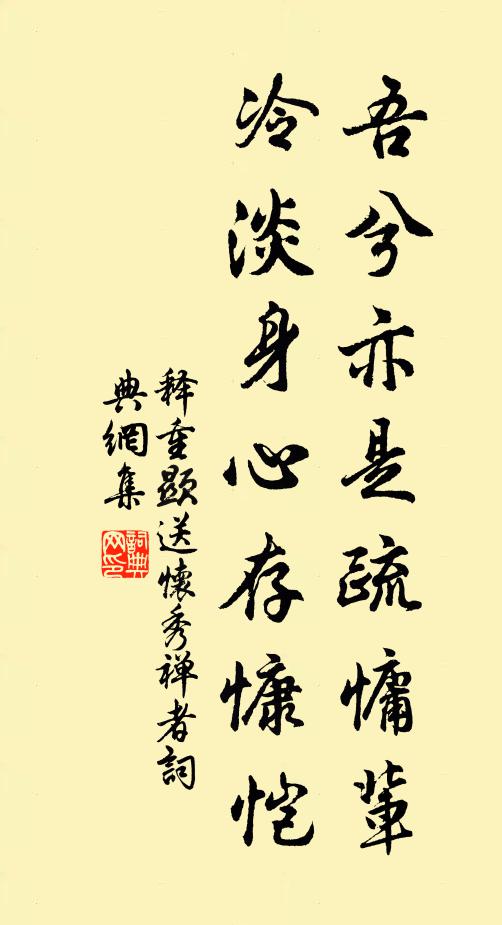 吾兮亦是疏慵輩
冷淡身心存慷恺
释重顯送懷秀禅者詞
典網集
詞典
网印